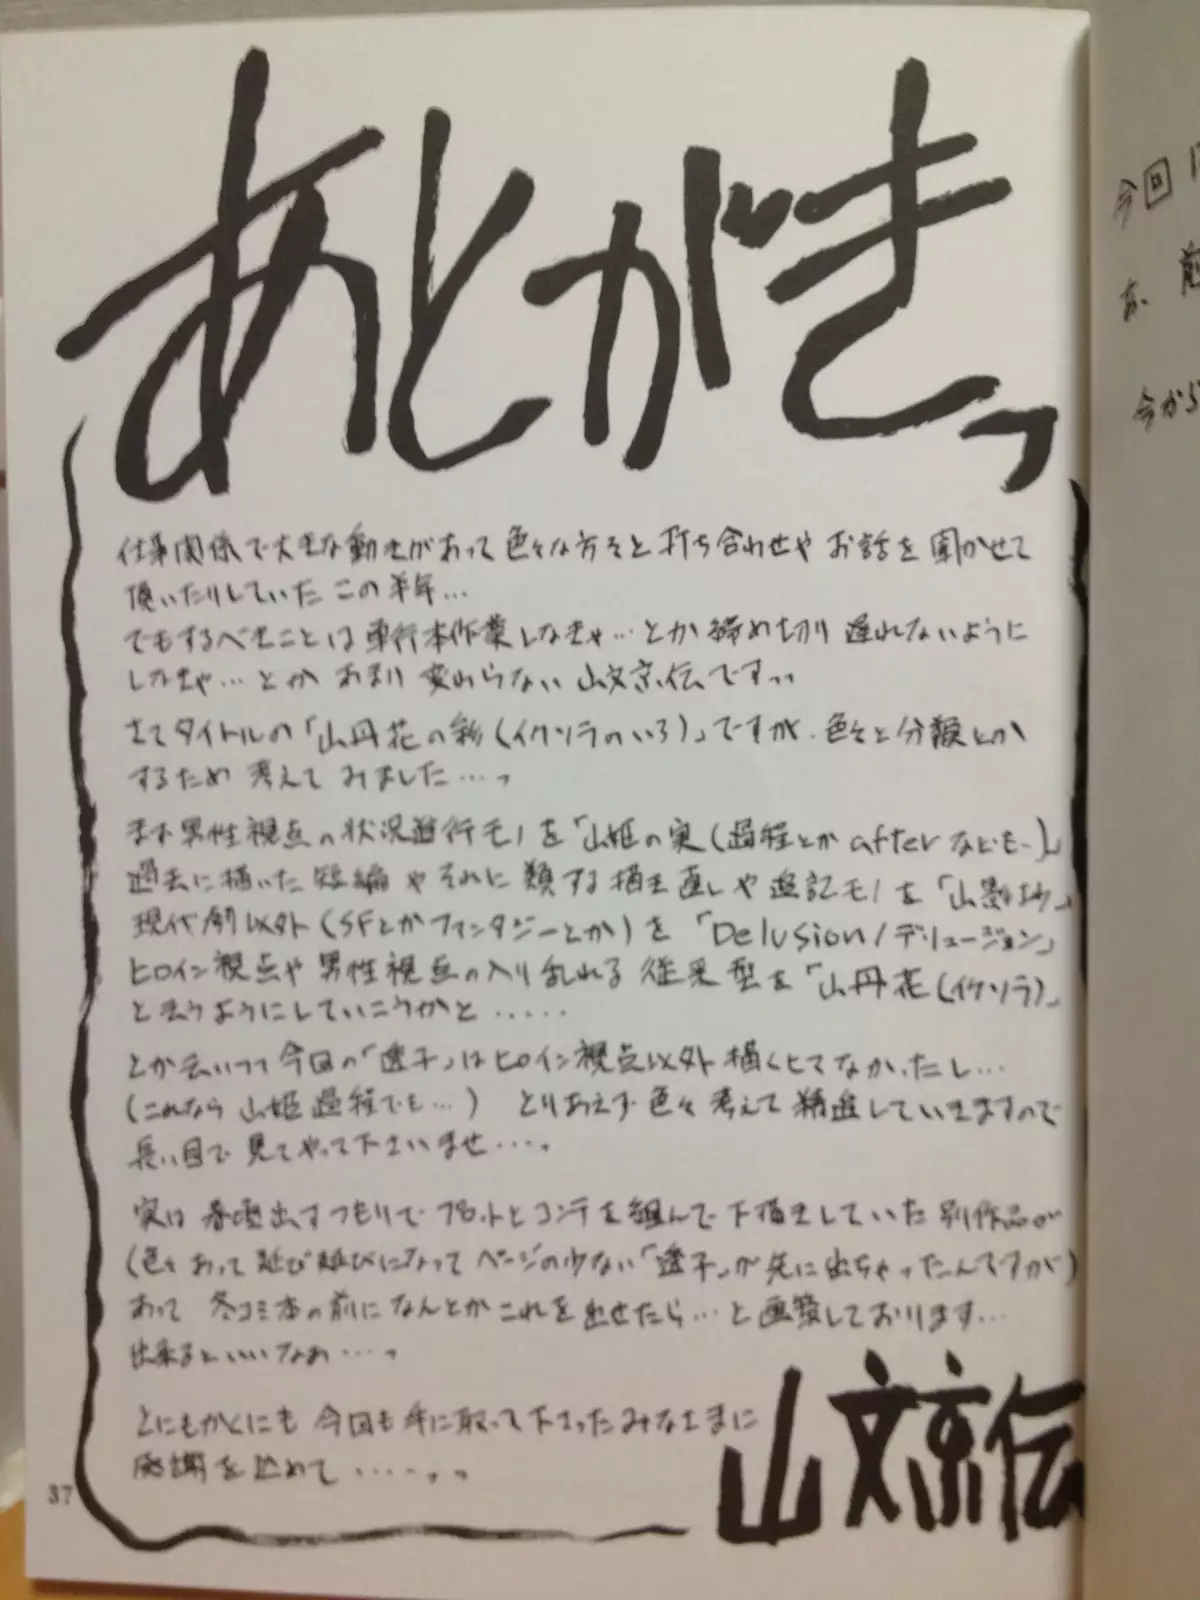 あとがきっ
仕事関係で大きな動きがあって色々な方々と打ち合わせやお話を聞かせて
頂いたりしていたこの半年…
でもするべきことは単行本作業しなきゃ…とか締め切り遅れないように
しなきゃ…とかあまり変わらない山文京伝ですっっ
さてタイトルの「山丹花の彩(イケソラのいろ)」ですが、色々と分類とか
するため考えてみました…っ
まず男性視点の状況進行モノを「山姫の実(過程とかafterなども…)」
過去に描いた短編やそれに類する描き直しや追記モノを「山影抄」
現代劇以外(SFとかファンタジーとか)を「Delusion/デリュージョン」
ヒロイン視点や男性視点の入り乱れる従来型を「山丹花(イケソラ)」
と云うようにしていこうかと・・・・・
とか云いつつ今回の「透子」はヒロイン視点以外描くヒマなかったし…
(これなら山姫過程でも…) とりあえず色々考えて精進していきますので
長い目で見てやって下さいませ・・・っ
実は春頃出すつもりでプロットとコンテを組んで下描きしていた別作品が
(色々あって延び延びになってページの少ない「透子」が先に出ちゃったんですが)
あって冬コミ本の前になんとかこれを出せたら…と画策しております…
出来るといいなぁ…っ
とにもかくにも今回も手に取って下さったみなさまに
感謝を込めて・・・・っっ
山文京伝
37
今回
あ、前
今から